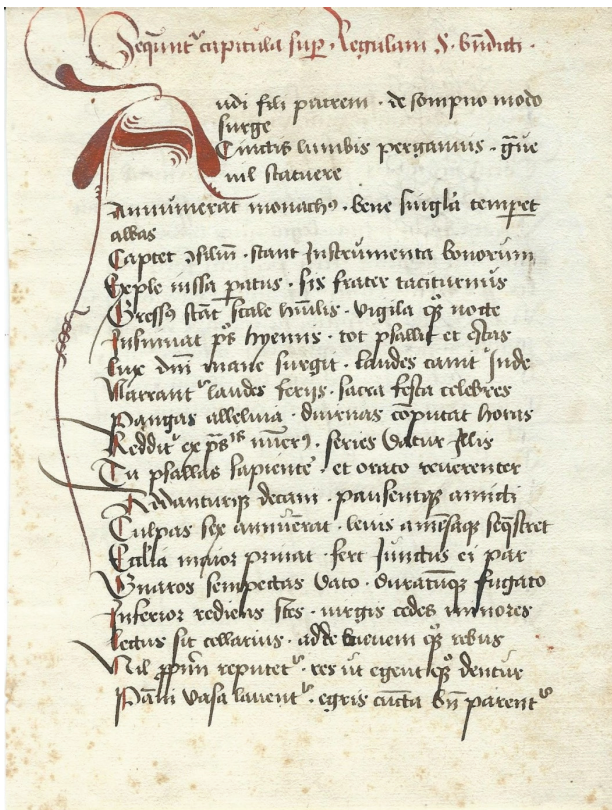 Sequnt᷑ capitula sup Regulam S. bndicti.
Audi fili patrem · de sompno modo
surge
Cinctis lumbis pergamus · que
nil statuere
Annumerat monachꝰ · bene singla temperet
albas
Captet ↄsiliū · stant Instrumenta bonorum
Exple iussa patris · sis frater taciturnus
Gressꝰ stāt scale hūilis · vigila qꝫ nocte
Insinuat ps hyemis · tot psallit et estas
Luce dm̄ mane surgit · laudes canit Inde
Narrant᷑ laudes ferijs · sacra festa celebres
Pangas alleluia · diurnas cōputat horas
Reddit᷑ ex ps nūerꝰ · series datur Illis
Tu psallas sapienter · et orato reverenter
decani · pausentqꝫ amicti
Culpas sex annūerat · levis a mēsaqꝫ seqstret
Ecclīa maior privat · fert Iunctus ei par
Gnaros sempectas dato · duratumqꝫ fugato
Inferior rediens stes · virgis cedes minores
Lectus sit cellarius · adde brevem qꝫ rebus
Nil ꝓpriū reputet᷑ · res ut egent qꝫ dentur
Pani vasa lavent᷑ · egris cūcta bn̄ parent᷑